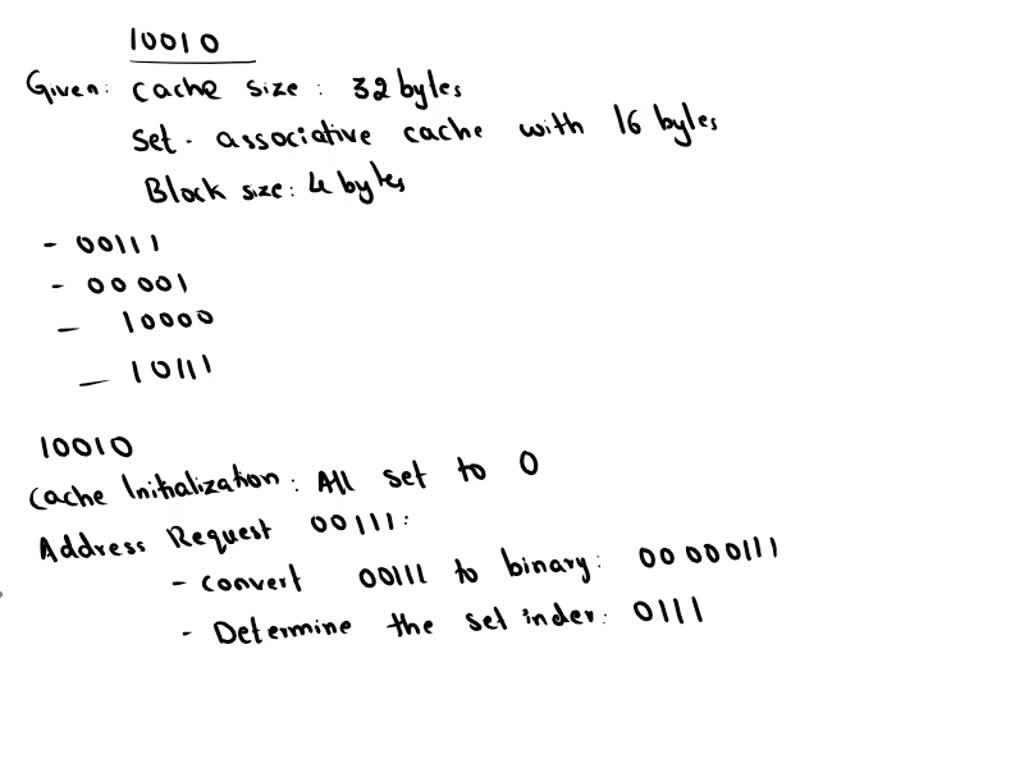 10010
Given: Cache size: 32 bytes
Set. associative cache with 16 bytes
Block size: 4 bytes
- 00111
- 00001
- 10000
- 10111
10010
Cache Initialization: All set to 0
Address Request 00111:
- convert 00111 to binary: 00000111
- Determine the set index: 0111